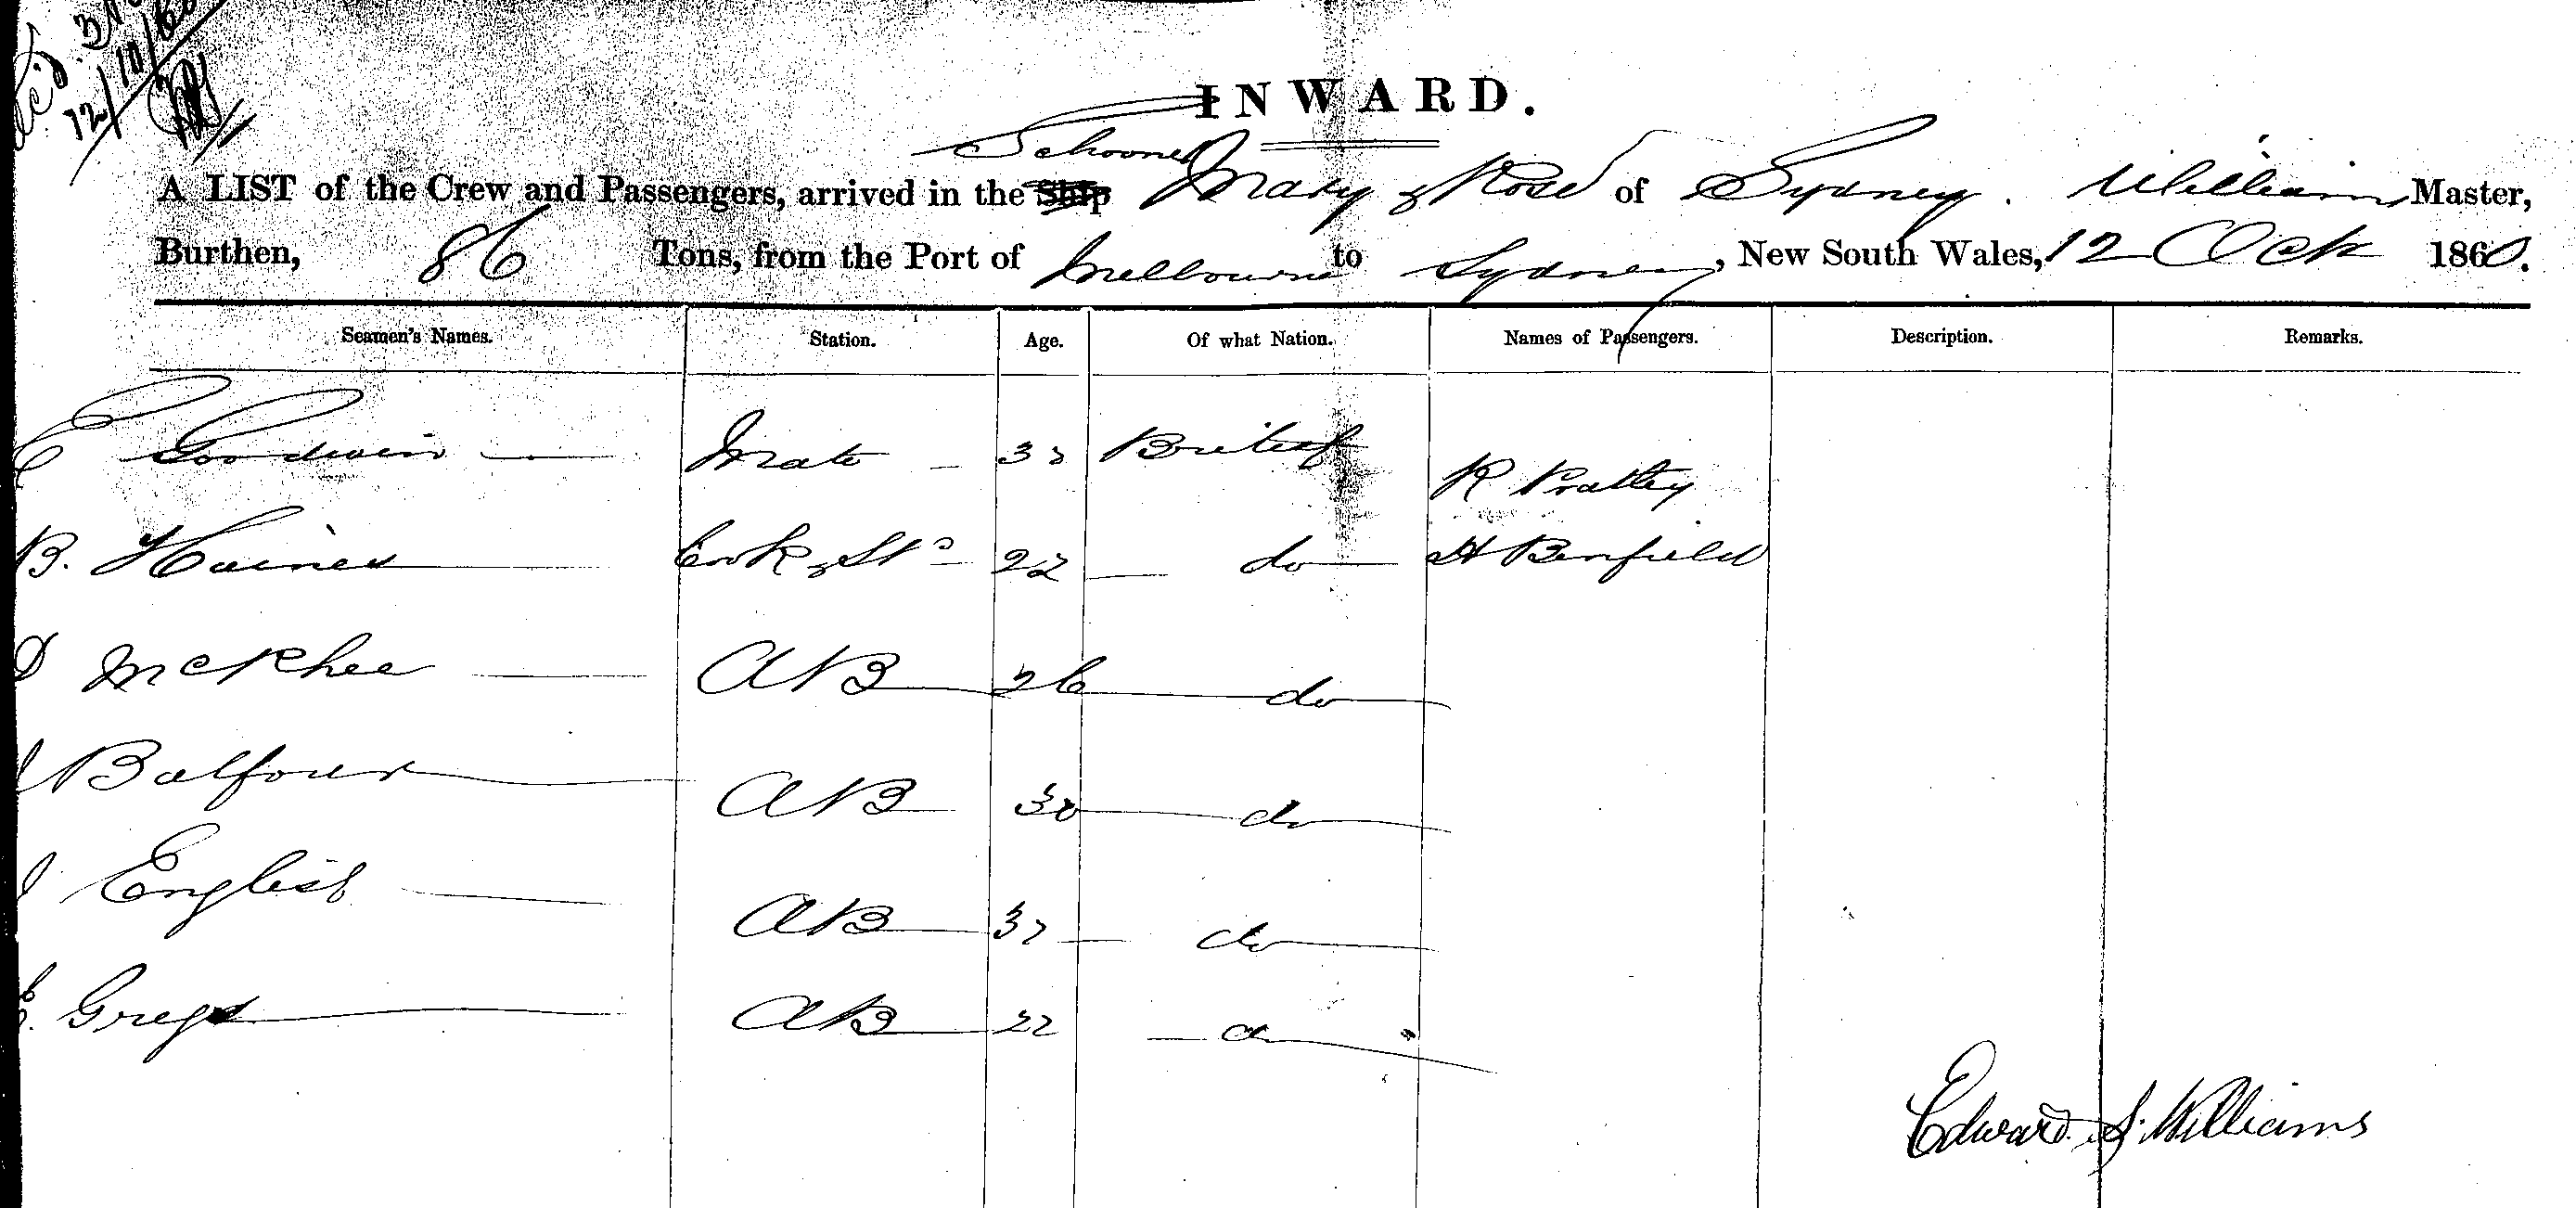 12/10/60
INWARD.
Schooner
A LIST of the Crew and Passengers, arrived in the Ship Mary & Rose of Sydney. Williams Master,
Burthen, 86 Tons, from the Port of Melbourne to Sydney, New South Wales, 12 Oct 1860.
Seamen's Names. Station. Age. Of what Nation. Names of Passengers. Description. Remarks.
Goodwin Mate British
R Prattey
B. Haines Cook & Std 22 do H Benfield
D McPhee AB 26 do
Balfour AB 30 do
English AB do
Gregs AB 22 do
Edward S. Williams